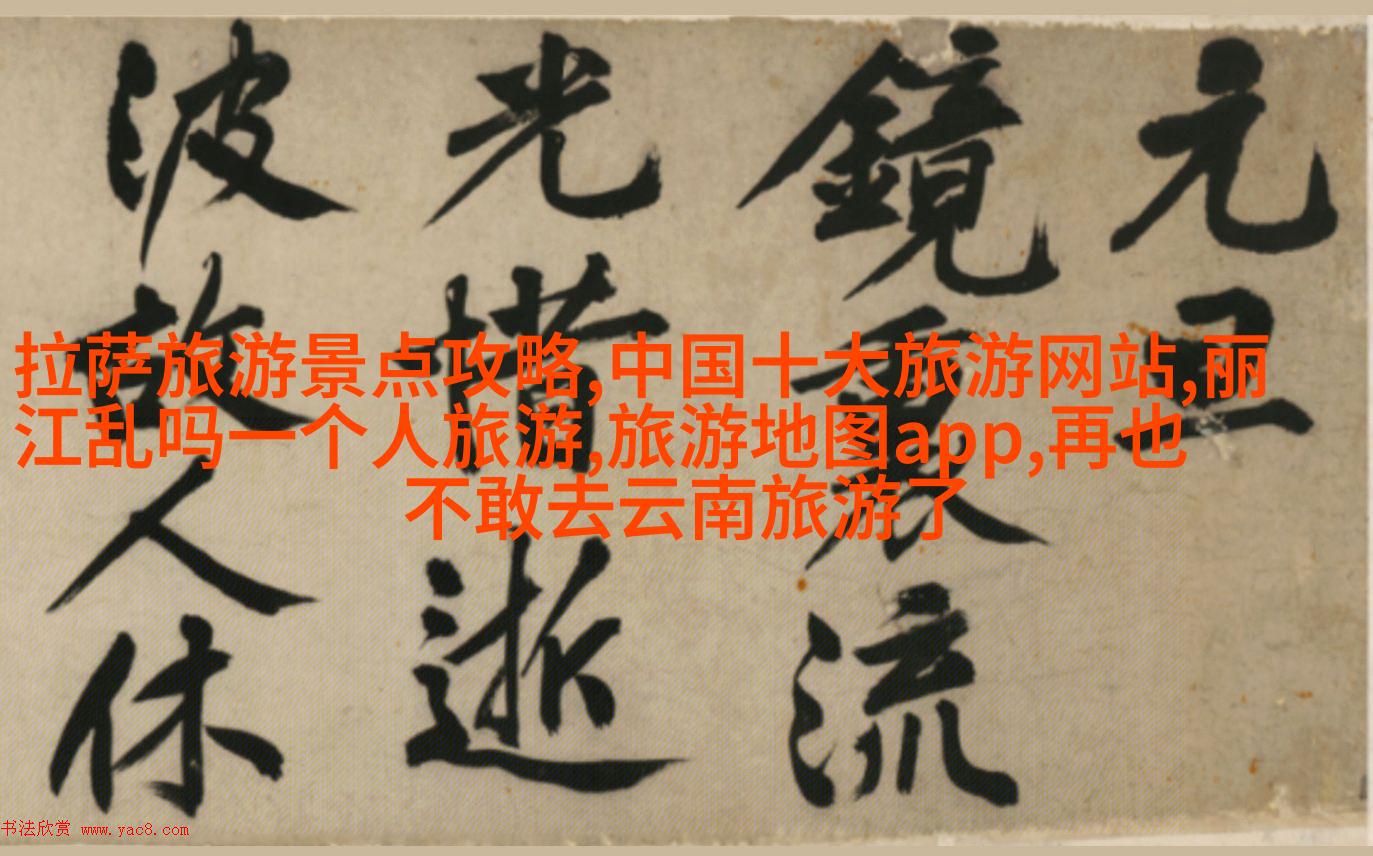 元
鏡裏流
光惜逝
波故人休
拉萨旅游景点攻略,中国十大旅游网站,丽
江乱吗一个人旅游,旅游地图app,再也
不敢去云南旅游了
书法欣赏 www.yac8.com